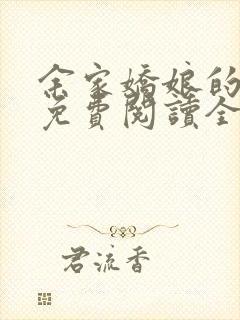 余家嬌娘的
免費閱讀全
君流香